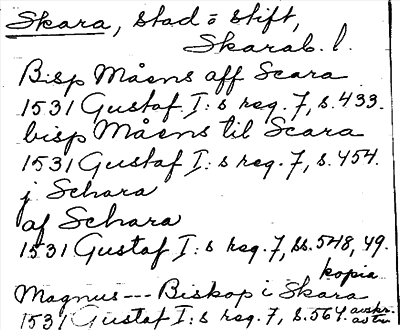 Skara, stad o stift,
Skarab. l.
Bisp Måens aff Scara
1531 Gustaf I:s reg. 7, s. 433.
bisp Måens til Scara
1531 Gustaf I:s reg. 7, s. 454.
j Schara
af Schara
1531 Gustaf I:s reg. 7, ss. 548, 49.
kopia
Magnus --- Biskop i Skara
1531 Gustaf I:s reg. 7, s. 564. avskr.